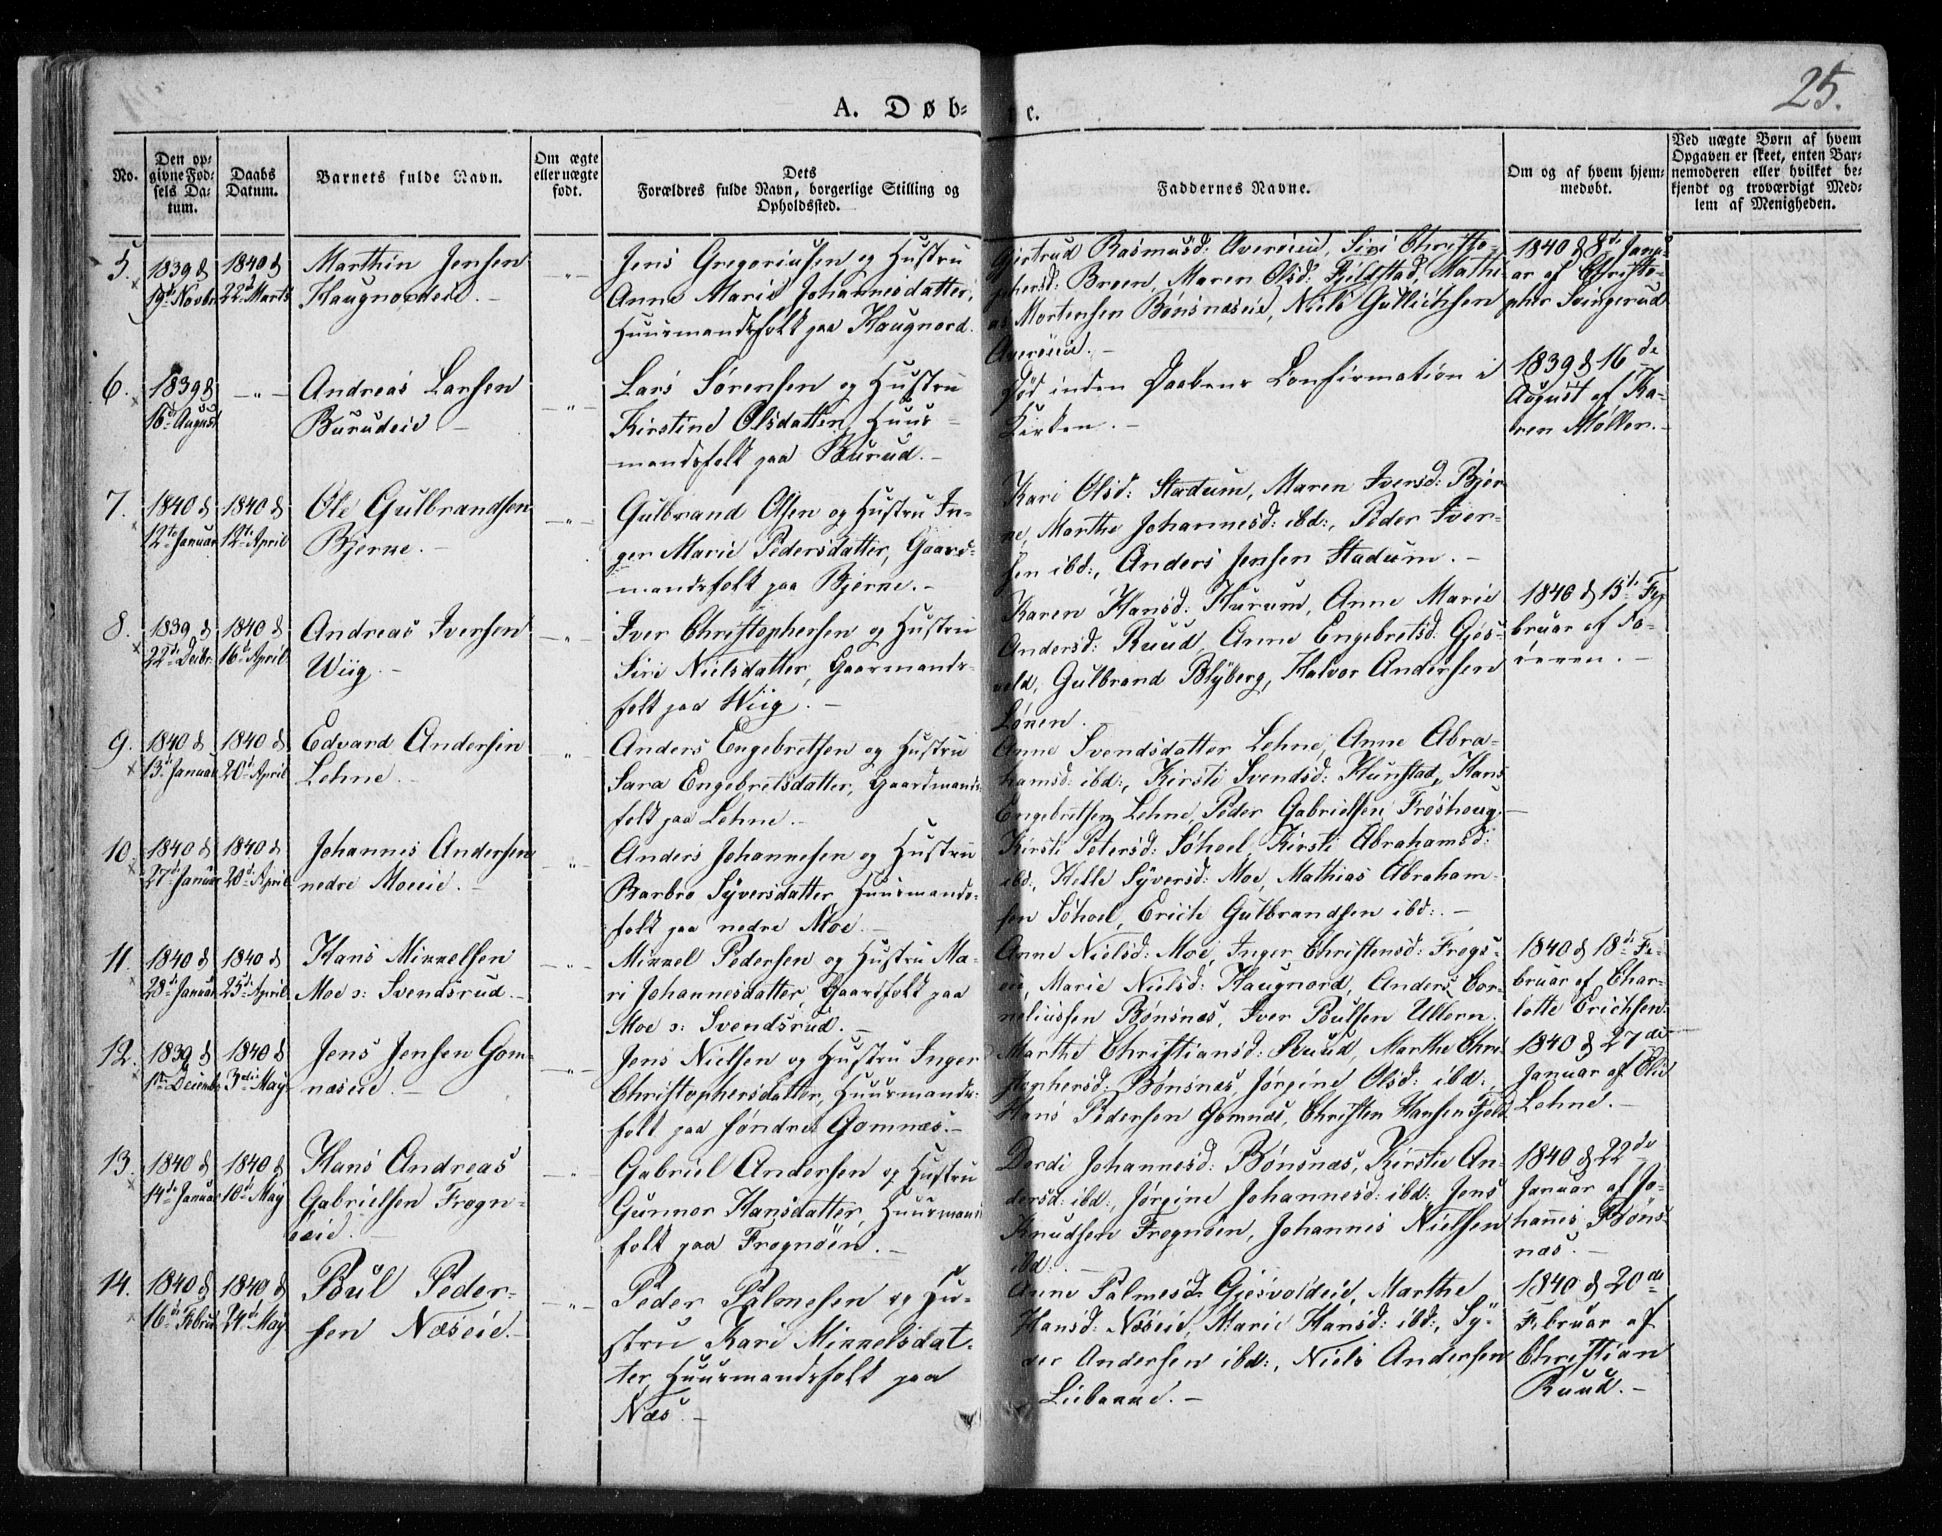 25.
A. Døb- te.
No.
Den op-
givne Fød-
sels Da-
tum.
Daabs
Datum.
Barnets fulde Navn.
Om ægte
eller uægte
født.
Dets
Forældres fulde Navn, borgerlige Stilling og
Opholdssted.
Faddernes Navne.
Om og af hvem hjem-
medøbt.
Ved uægte Børn af hvem
Opgaven er skeet, enten Bar-
nemoderen eller hvilket be-
kjendt og troværdigt Med-
lem af Menigheden.
5.
1839 d
19de Novbr
1840 d
22de Marts
Marthin Jensen
Haugnordeie.
Jens Gregoriusen og Hustru
Anne Marie Johannesdatter,
Huusmandsfolk paa Haugnord.
Gjertrud Rasmusd: Averøieie, Siri Christo-
phersd: Braen, Maren Olsd: Fjeldstad, Mathi-
as Mortensen Bønsnæseie, Niels Gullichsen
Averøieie.
1840 d 8de Janu-
ar af Christo-
pher Svingerud
6.
1839 d
16de August
Andreas Larsen
Burudeie.
Lars Sørensen og Hustru
Kirstine Olsdatter, Huus-
mandsfolk paa Burud.
død inden Daabens Confirmation i
Kirken.
1839 d 16de
August af Ka-
ren Møller.
7.
1840 d
12te Januar
1840 d
12te April
Ole Gulbrandsen
Bjerne.
Gulbrand Olsen og Hustru In-
ger Marie Pedersdatter, Gaard-
mandsfolk paa Bjerne.
Kari Olsd: Stadum, Maren Iversd: Bjer-
ne, Marthe Johannesd: ibd:, Peder Iver-
sen ibd:, Anders Jensen Stadum.
8.
1839 d
22de Decbr
1840 d
16de April
Andreas Iversen
Wiig.
Iver Christophersen og Hustru
Siri Nielsdatter, Gaarmands-
folk paa Wiig.
Karen Hansd: Hurum, Anne Marie
Andersd: Ruud, Anne Engebretsd: Gjes-
vold, Gulbrand Blyberg, Halvor Andersen
Lønen.
1840 d 15de Fe-
bruar af Fa-
deren.
9.
1840 d
13de Januar
1840 d
20de April
Edvard Andersen
Lehne.
Anders Engebretsen og Hustru
Sara Engebretsdatter, Gaardmands-
folk paa Lehne.
Anne Svendsdatter Lehne, Anne Abra-
hamsd: ibd:, Kirsti Svendsd: Hunstad, Hans
Engebretsen Lehne, Peder Gabrielsen Frøshoug.
10.
1840 d
27de Januar
1840 d
20de April
Johannes Andersen
nedre Moeeie.
Anders Johannesen og Hustru
Barbro Syversdatter, Huusmands-
folk paa nedre Moe.
Kirsti Petersd: Søhoel, Kirsti Abrahamsd:
ibd:, Helle Syversd: Moe, Mathias Abraham-
sen Søhoel, Erich Gulbrandsen ibd:.
11.
1840 d
28de Januar
1840 d
25de April
Hans Mikkelsen
Moe s: Svendsrud
Mikkel Pedersen og Hustru Ma-
ri Johannesdatter, Gaardfolk paa
Moe s: Svendsrud.
Anne Nielsd: Moe, Inger Christensd: Frogs-
eie, Marie Nielsd: Haugnord, Anders Cor-
neliussen Bønsnæs, Iver Poulsen Ullern.
1840 d 18de Fe-
bruar af Char-
lotte Erichsen.
12.
1839 d
1ste Decembr
1840 d
3die May
Jens Jensen Gom-
næseie.
Jens Nielsen og Hustru Inger
Christophersdatter, Huusmands-
folk paa søndre Gomnæs.
Marthe Christiansd: Ruud, Marthe Chri-
stophersd: Bønsnæs, Jørgine Olsd: ibd:,
Hans Pedersen Gomnæs, Christen Hansen Fjeld
1840 d 27de
Januar af Ole
Lehne.
13.
1840 d
14de Januar
1840 d
10de May
Hans Andreas
Gabrielsen Frogn-
øeie.
Gabriel Andersen og Hustru
Gunnor Hansdatter, Huusmands-
folk paa Frognøen.
Dordi Johannesd: Bønsnæs, Kirstie An-
dersd: ibd:, Jørgine Johannesd: ibd:, Jens
Knudsen Frognøen, Johannes Nielsen
ibd:.
1840 d 22de
Januar af Jo-
hannes Bøns-
næs.
14.
1840 d
16de Febru
1840 d
24de May
Poul Peder-
sen Næseie.
Peder Palmesen og Hu-
stru Kari Mikkelsdat-
ter, Huusmandsfolk paa
Næs.
Anne Palmesd: Gjesvoldeie, Marthe
Hansd: Næseie, Marie Hansd: ibd:, Sy-
ver Andersen ibd:, Niels Andersen
1840 d 20de
Februar af
Christian
Ruud.